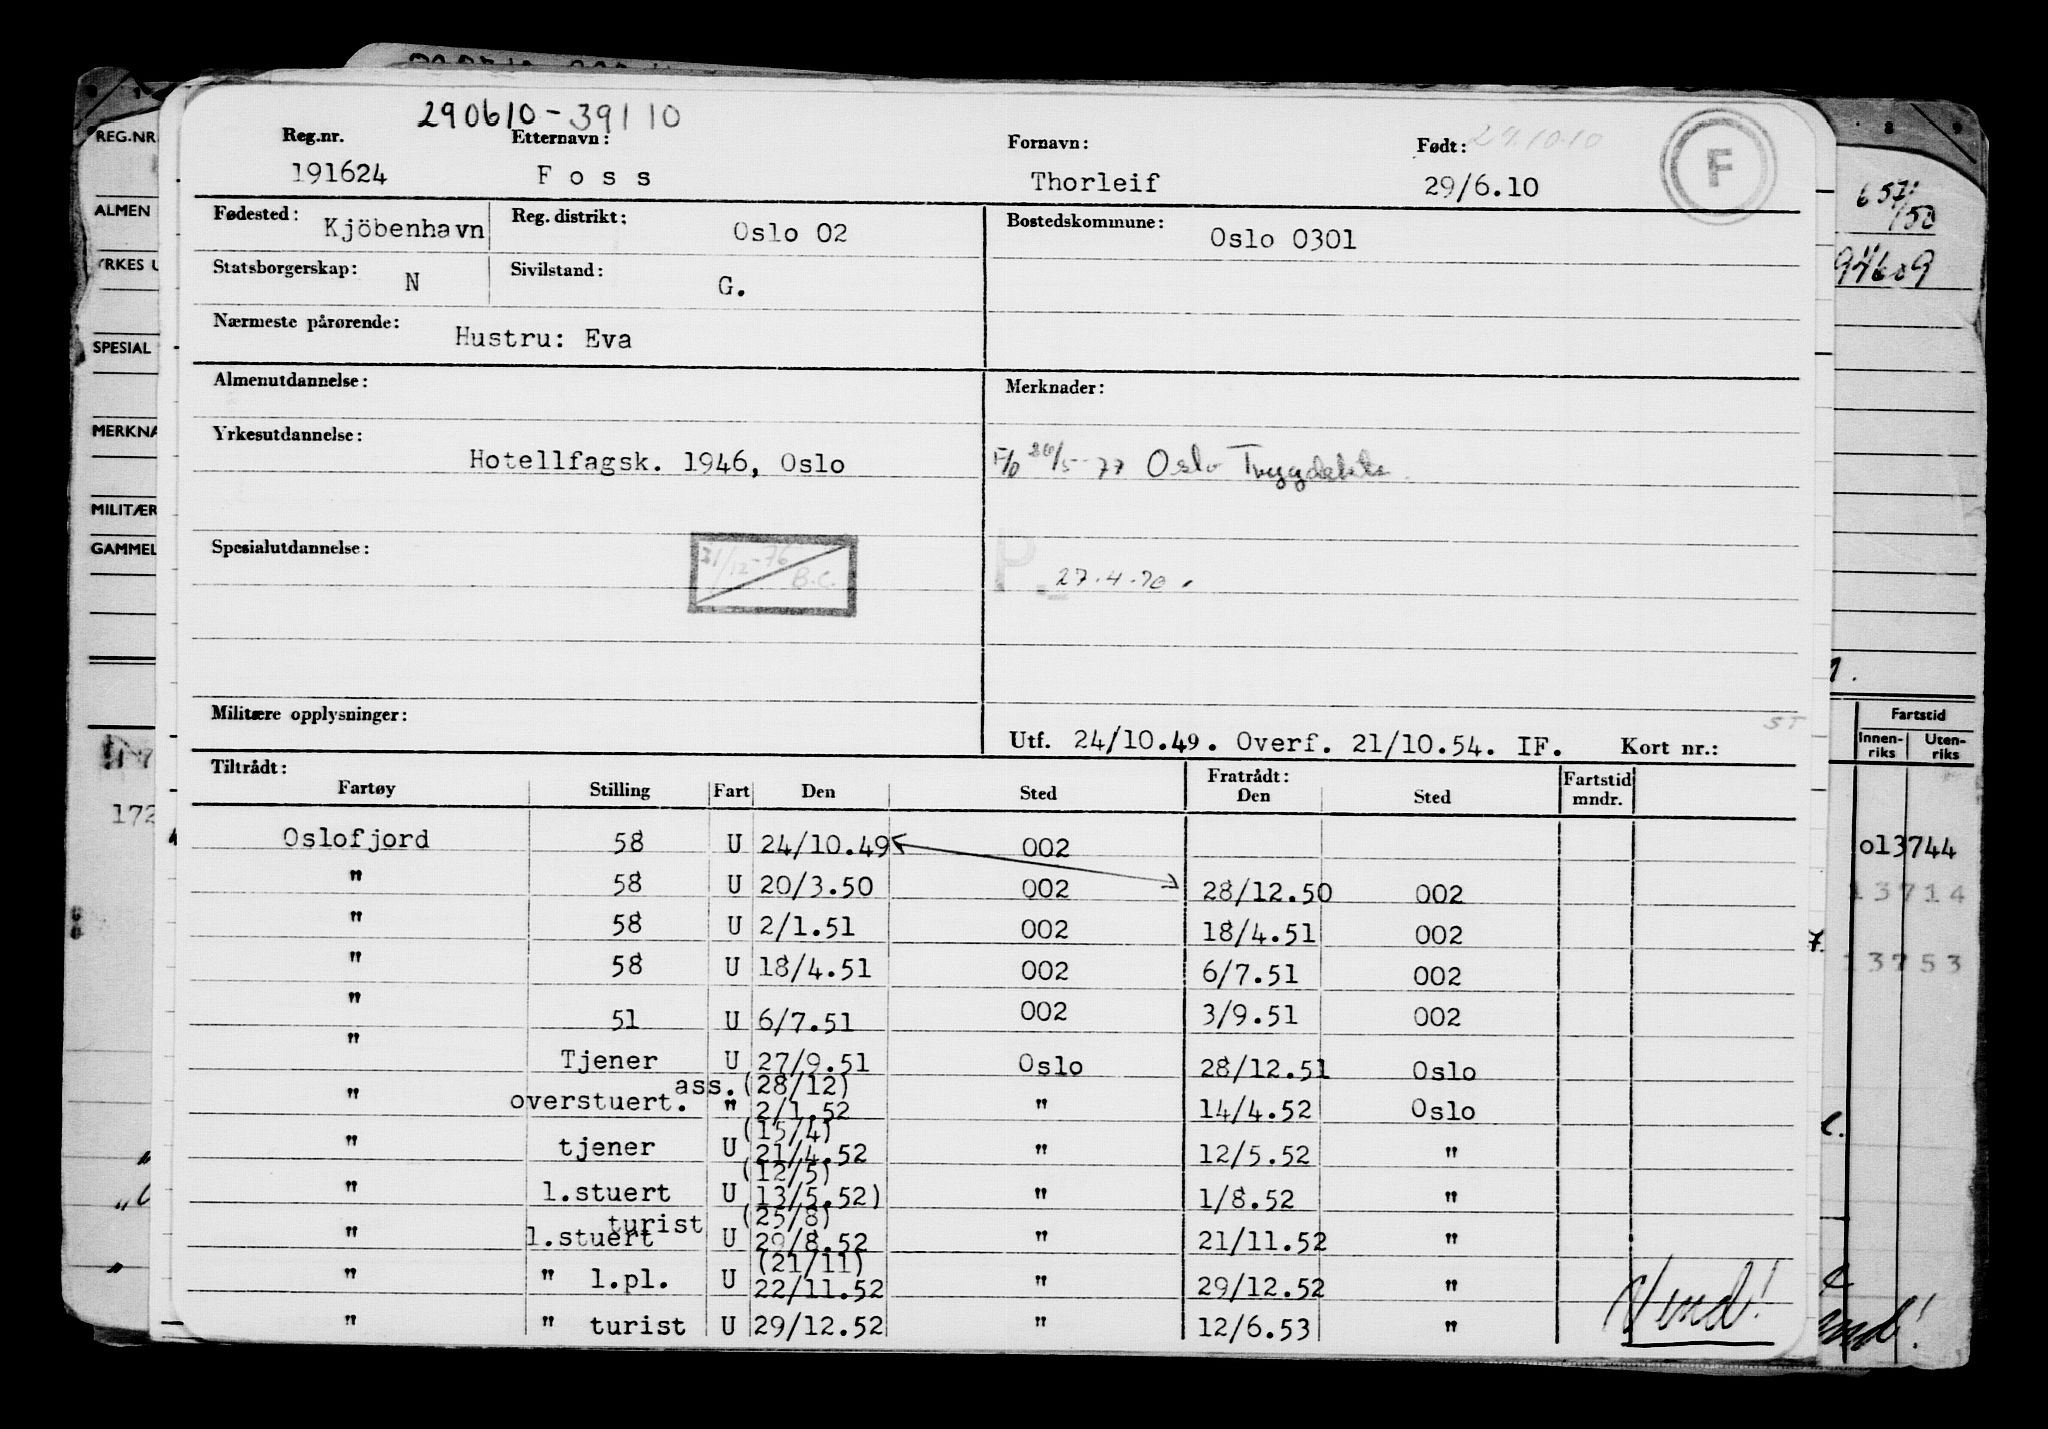 290610-39110
Reg.nr. Etternavn: Fornavn: Født: 29.10.10 F
191624 Foss Thorleif 29/6.10
Fødested: Kjöbenhavn Reg. distrikt: Oslo 02 Bostedskommune: Oslo 0301
Statsborgerskap: N Sivilstand: G.
Nærmeste pårørende: Hustru: Eva
Almenutdannelse: Merknader:
Yrkesutdannelse:
Hotellfagsk. 1946, Oslo F/o 26/5-77 Oslo
Spesialutdannelse: 31/12-76 B.C. P. 27.4.70.
Militære opplysninger: ST
Utf. 24/10.49. Overf. 21/10.54. IF. Kort nr.:
Tiltrådt: Fratrådt: Fartstid
Fartøy Stilling Fart Den Sted Den Sted mndr.
Oslofjord 58 U 24/10.49 002
" 58 U 20/3.50 002 28/12.50 002
" 58 U 2/1.51 002 18/4.51 002
" 58 U 18/4.51 002 6/7.51 002
" 51 U 6/7.51 002 3/9.51 002
" Tjener U 27/9.51 Oslo 28/12.51 Oslo
ass. (28/12)
" overstuert. " 2/1.52 " 14/4.52 Oslo
(15/4)
" tjener U 21/4.52 " 12/5.52 "
(12/5)
" l.stuert U 13/5.52) " 1/8.52 "
turist (25/8)
" l.stuert U 29/8.52 " 21/11.52 "
(21/11)
" " l.pl. U 22/11.52 " 29/12.52 "
" " turist U 29/12.52 " 12/6.53 "
Vend!
REG.NR.
ALMEN
YRKES U
SPESIAL
MERKNA
MILITÆR
GAMMEL
172
657/50
94609
Fartstid
Innen-riks Uten-riks
013744
13714
13753